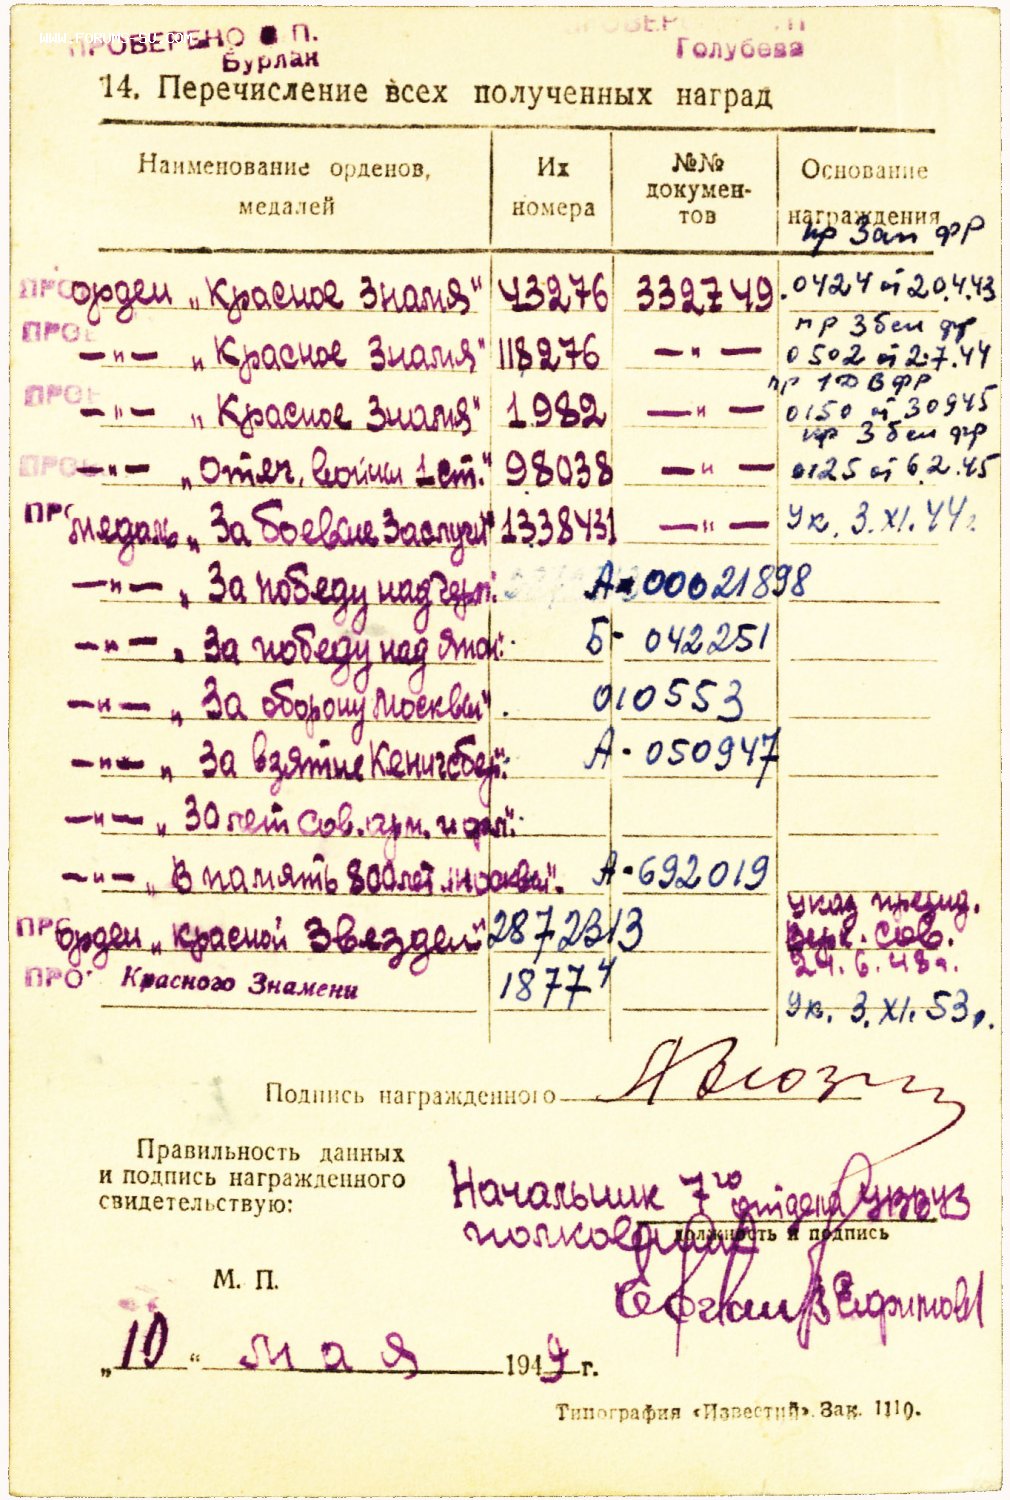 WWW.FORUMS-SU.COM
ПРОВЕРЕНО П.
Бурлак
Голубева
14. Перечисление всех полученных наград
Наименование орденов, медалей
Их номера
№№ документов
Основание награждения
пр Зап фР
ПРО орден „Красное Знамя" 43276 332749 0424 от 20.4.43
пр 3 бел фр
ПРОВ —"— „Красное Знамя" 118276 —"— 0502 от 2.7.44
пр 1 ДВФР
ПРОВ —"— „Красное Знамя" 1982 —"— 0150 от 30945
пр 3 бел фр
ПРОВ —"— „Отеч. войны 1 ст." 98038 —"— 0125 от 6.2.45
ПРО медаль „За боевые Заслуги" 1338431 —"— Ук. 3.XI.44г.
—"— „За победу над Герм." А-00021898
—"— „За победу над Япон." Б-042251
—"— „За оборону Москвы". 010553
—"— „За взятие Кенигсбер." А-050947
—"— „30 лет Сов. арм. и фл."
—"— „В память 800 лет Москвы". А-692019
Указ презид.
ПРО Орден „Красной Звезды" 2872313 Верх. Сов.
24.6.48г.
ПРО Красного Знамени 18774
Ук. 3.XI.53г.
Подпись награжденного
Правильность данных
и подпись награжденного
свидетельствую:
Начальник 7го отдела
полковник
должность и подпись
М. П.
Ефимов
„10" мая 1949 г.
Типография «Известий». Зак. 1110.